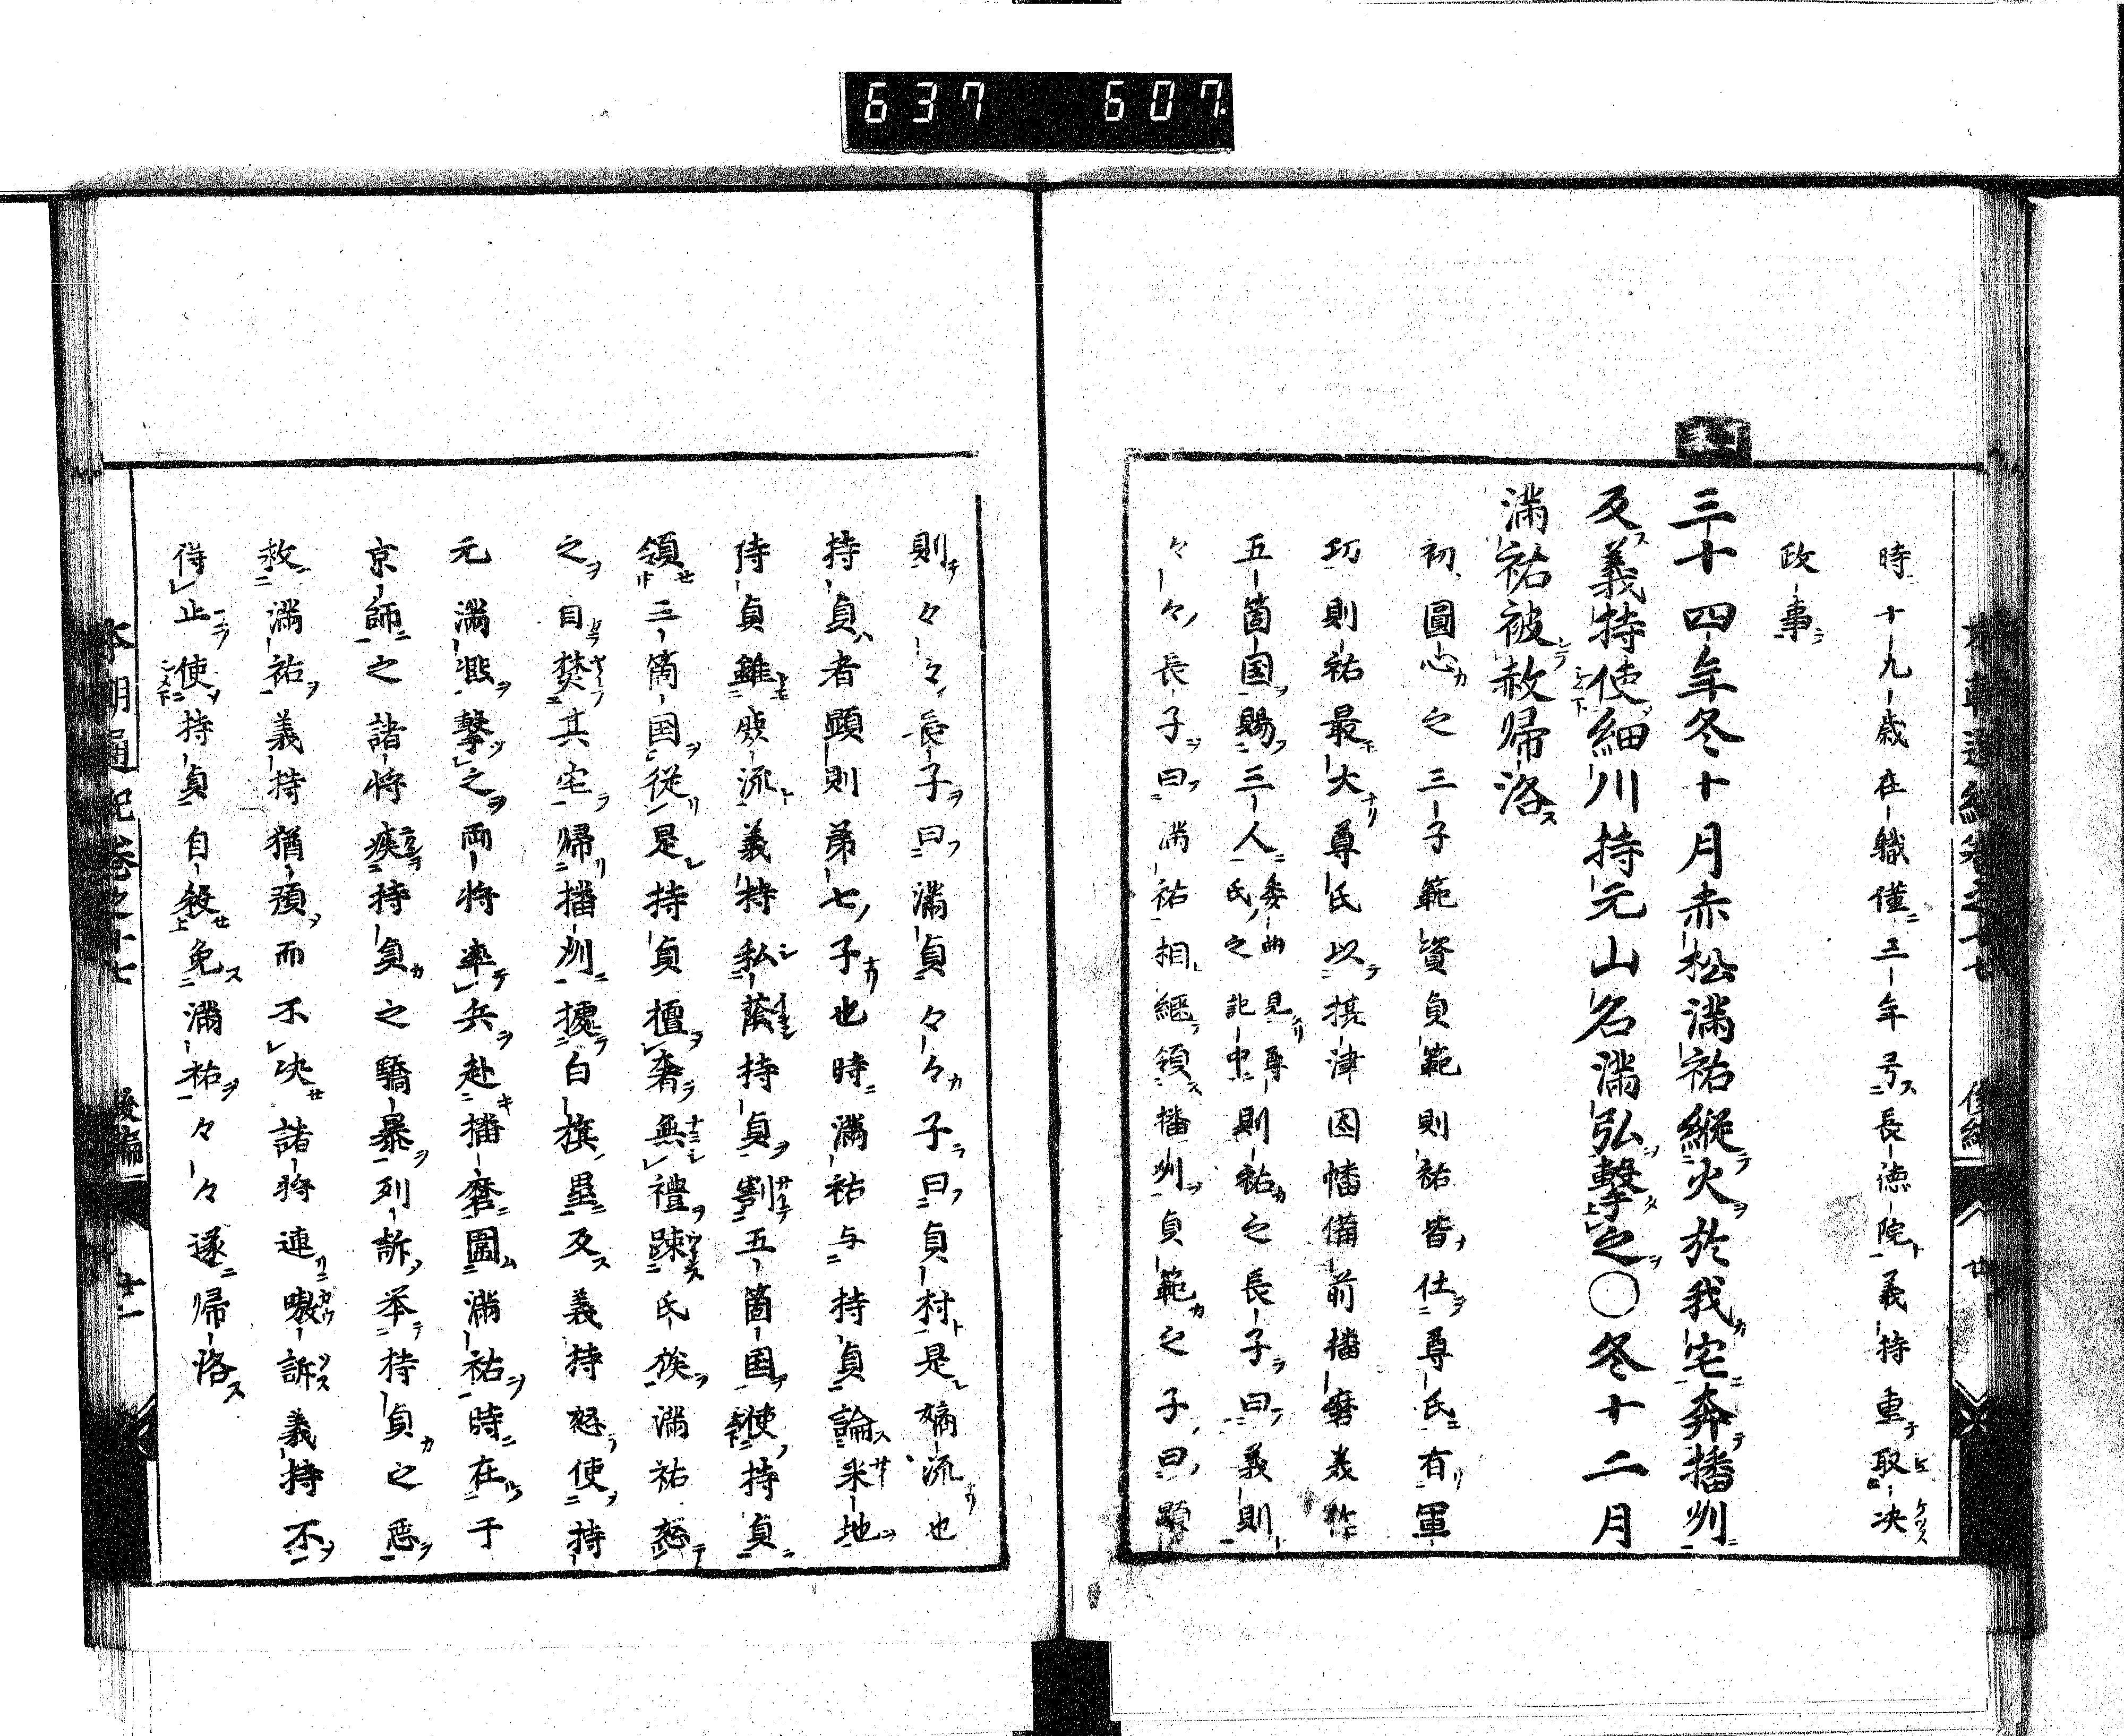 637 607
時十九歳在職僅三年号長徳院義持重取決
政事
丁未
三十四年冬十月赤松満祐縦火於我宅奔播州
及義持使細川持元山名満弘撃之〇冬十二月
満祐被赦帰洛
初圓心之三子範資貞範則祐皆仕尊氏有軍
功則祐最大尊氏以摂津因幡備前播磨美作
五箇国賜三人委曲見尊氏之記中則祐之長子曰義則
々々長子曰満祐相継領播州貞範之子曰顕
則々々長子曰満貞々々子曰貞村是嫡流也
持貞者顕則弟七子也時満祐与持貞論釆地
持貞雖庶流義持私蔭持貞割五箇国使持貞
領三箇国従是持貞擅奢無禮踈氏族満祐怒
之自焚其宅帰播州據白旗塁及義持怒使持
元満凞撃之両将率兵赴播磨圍満祐時在于
京師之諸将疾持貞之驕暴列訴挙持貞之悪
救満祐義持猶預而不决諸将連嗷訴義持不
得止使持貞自殺免満祐々々遂帰洛
本朝通紀巻之十七 後編 廿
本朝通紀巻之十七 後編 廿一